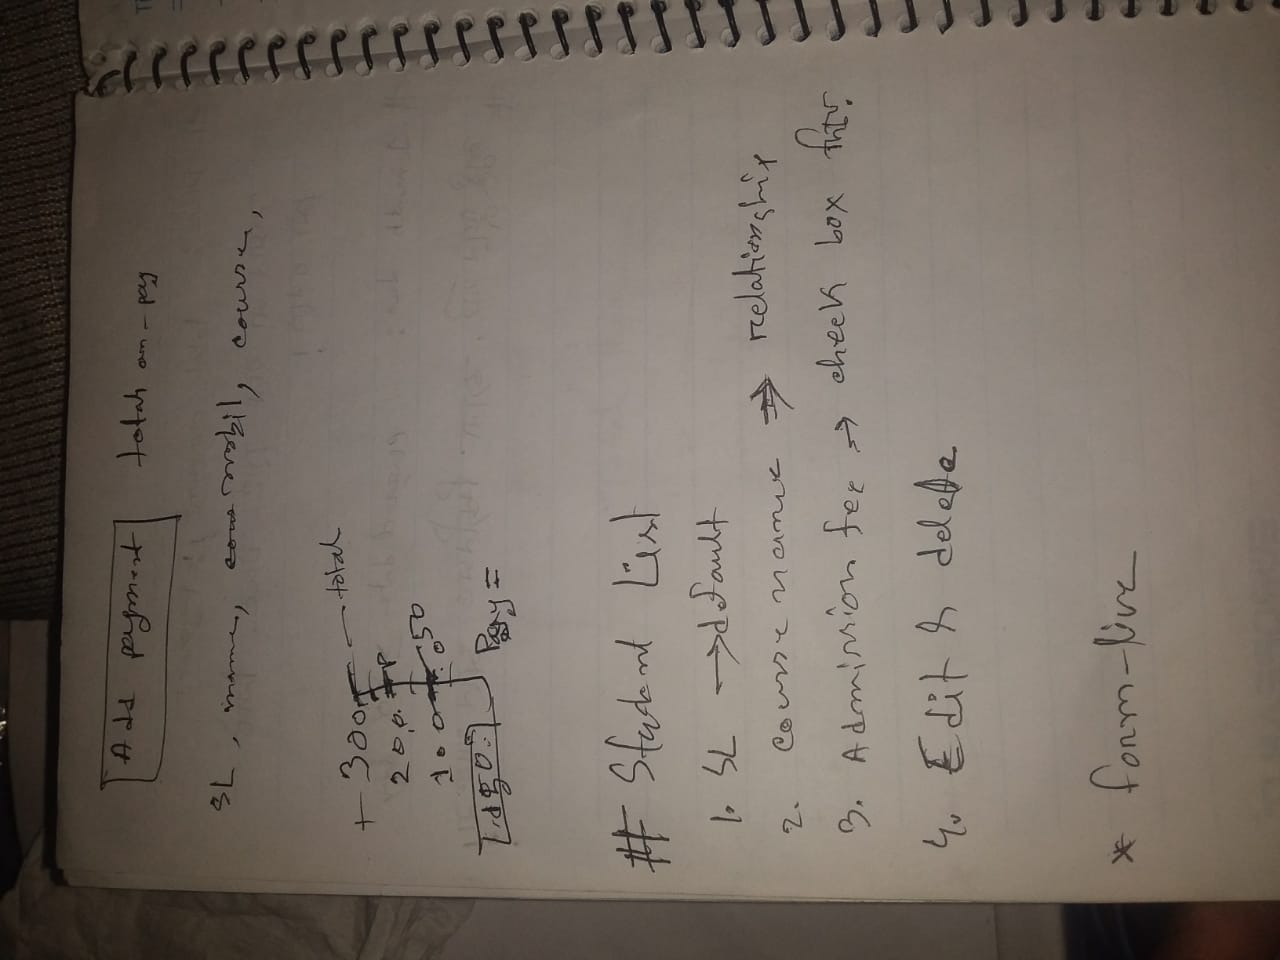 Add payment total am-pay
SL, name, mobil, course,
+ 300 — total
200 P
100 50
Pay =
# Student List
1. SL → default
2. Course name ⇒ relationship
3. Admission fee → check box
4. Edit & delete
* form-live